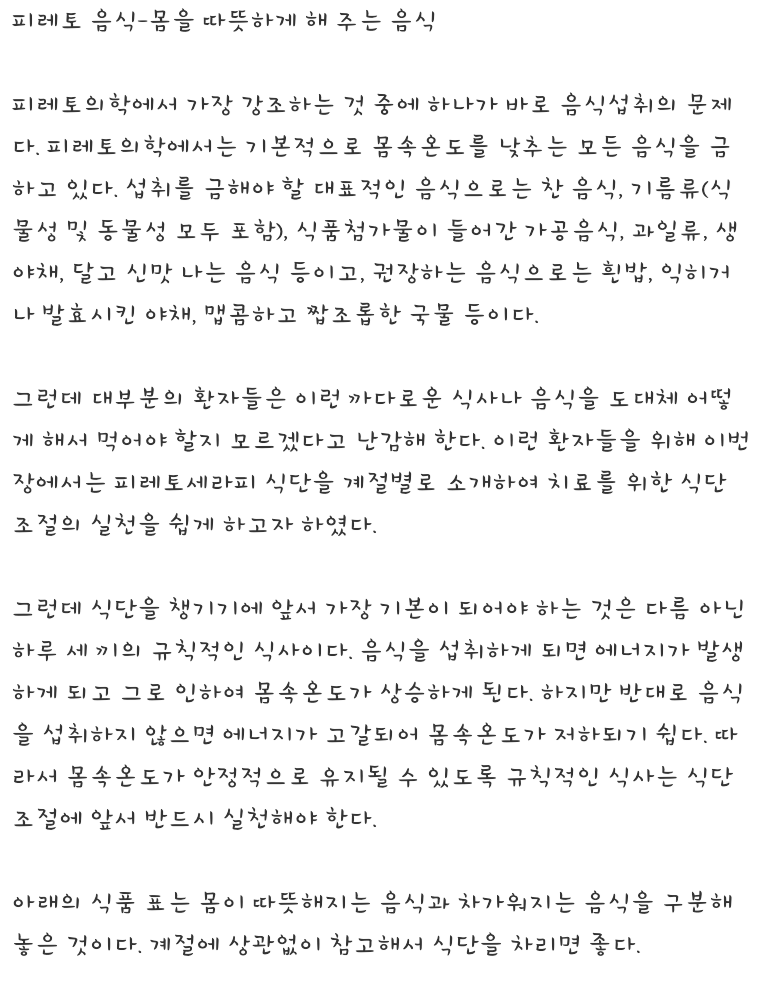 피레토 음식-몸을 따뜻하게 해 주는 음식
피레토의학에서 가장 강조하는 것 중에 하나가 바로 음식섭취의 문제
다. 피레토의학에서는 기본적으로 몸속온도를 낮추는 모든 음식을 금
하고 있다. 섭취를 금해야 할 대표적인 음식으로는 찬 음식, 기름류(식
물성 및 동물성 모두 포함), 식품첨가물이 들어간 가공음식, 과일류, 생
야채, 달고 신맛 나는 음식 등이고, 권장하는 음식으로는 흰밥, 익히거
나 발효시킨 야채, 맵콤하고 짭조롭한 국물 등이다.
그런데 대부분의 환자들은 이런 까다로운 식사나 음식을 도대체 어떻
게 해서 먹어야 할지 모르겠다고 난감해 한다. 이런 환자들을 위해 이번
장에서는 피레토세라피 식단을 계절별로 소개하여 치료를 위한 식단
조절의 실천을 쉽게 하고자 하였다.
그런데 식단을 챙기기에 앞서 가장 기본이 되어야 하는 것은 다름 아닌
하루 세 끼의 규칙적인 식사이다. 음식을 섭취하게 되면 에너지가 발생
하게 되고 그로 인하여 몸속온도가 상승하게 된다. 하지만 반대로 음식
을 섭취하지 않으면 에너지가 고갈되어 몸속온도가 저하되기 쉽다. 따
라서 몸속온도가 안정적으로 유지될 수 있도록 규칙적인 식사는 식단
조절에 앞서 반드시 실천해야 한다.
아래의 식품 표는 몸이 따뜻해지는 음식과 차가워지는 음식을 구분해
놓은 것이다. 계절에 상관없이 참고해서 식단을 차리면 좋다.